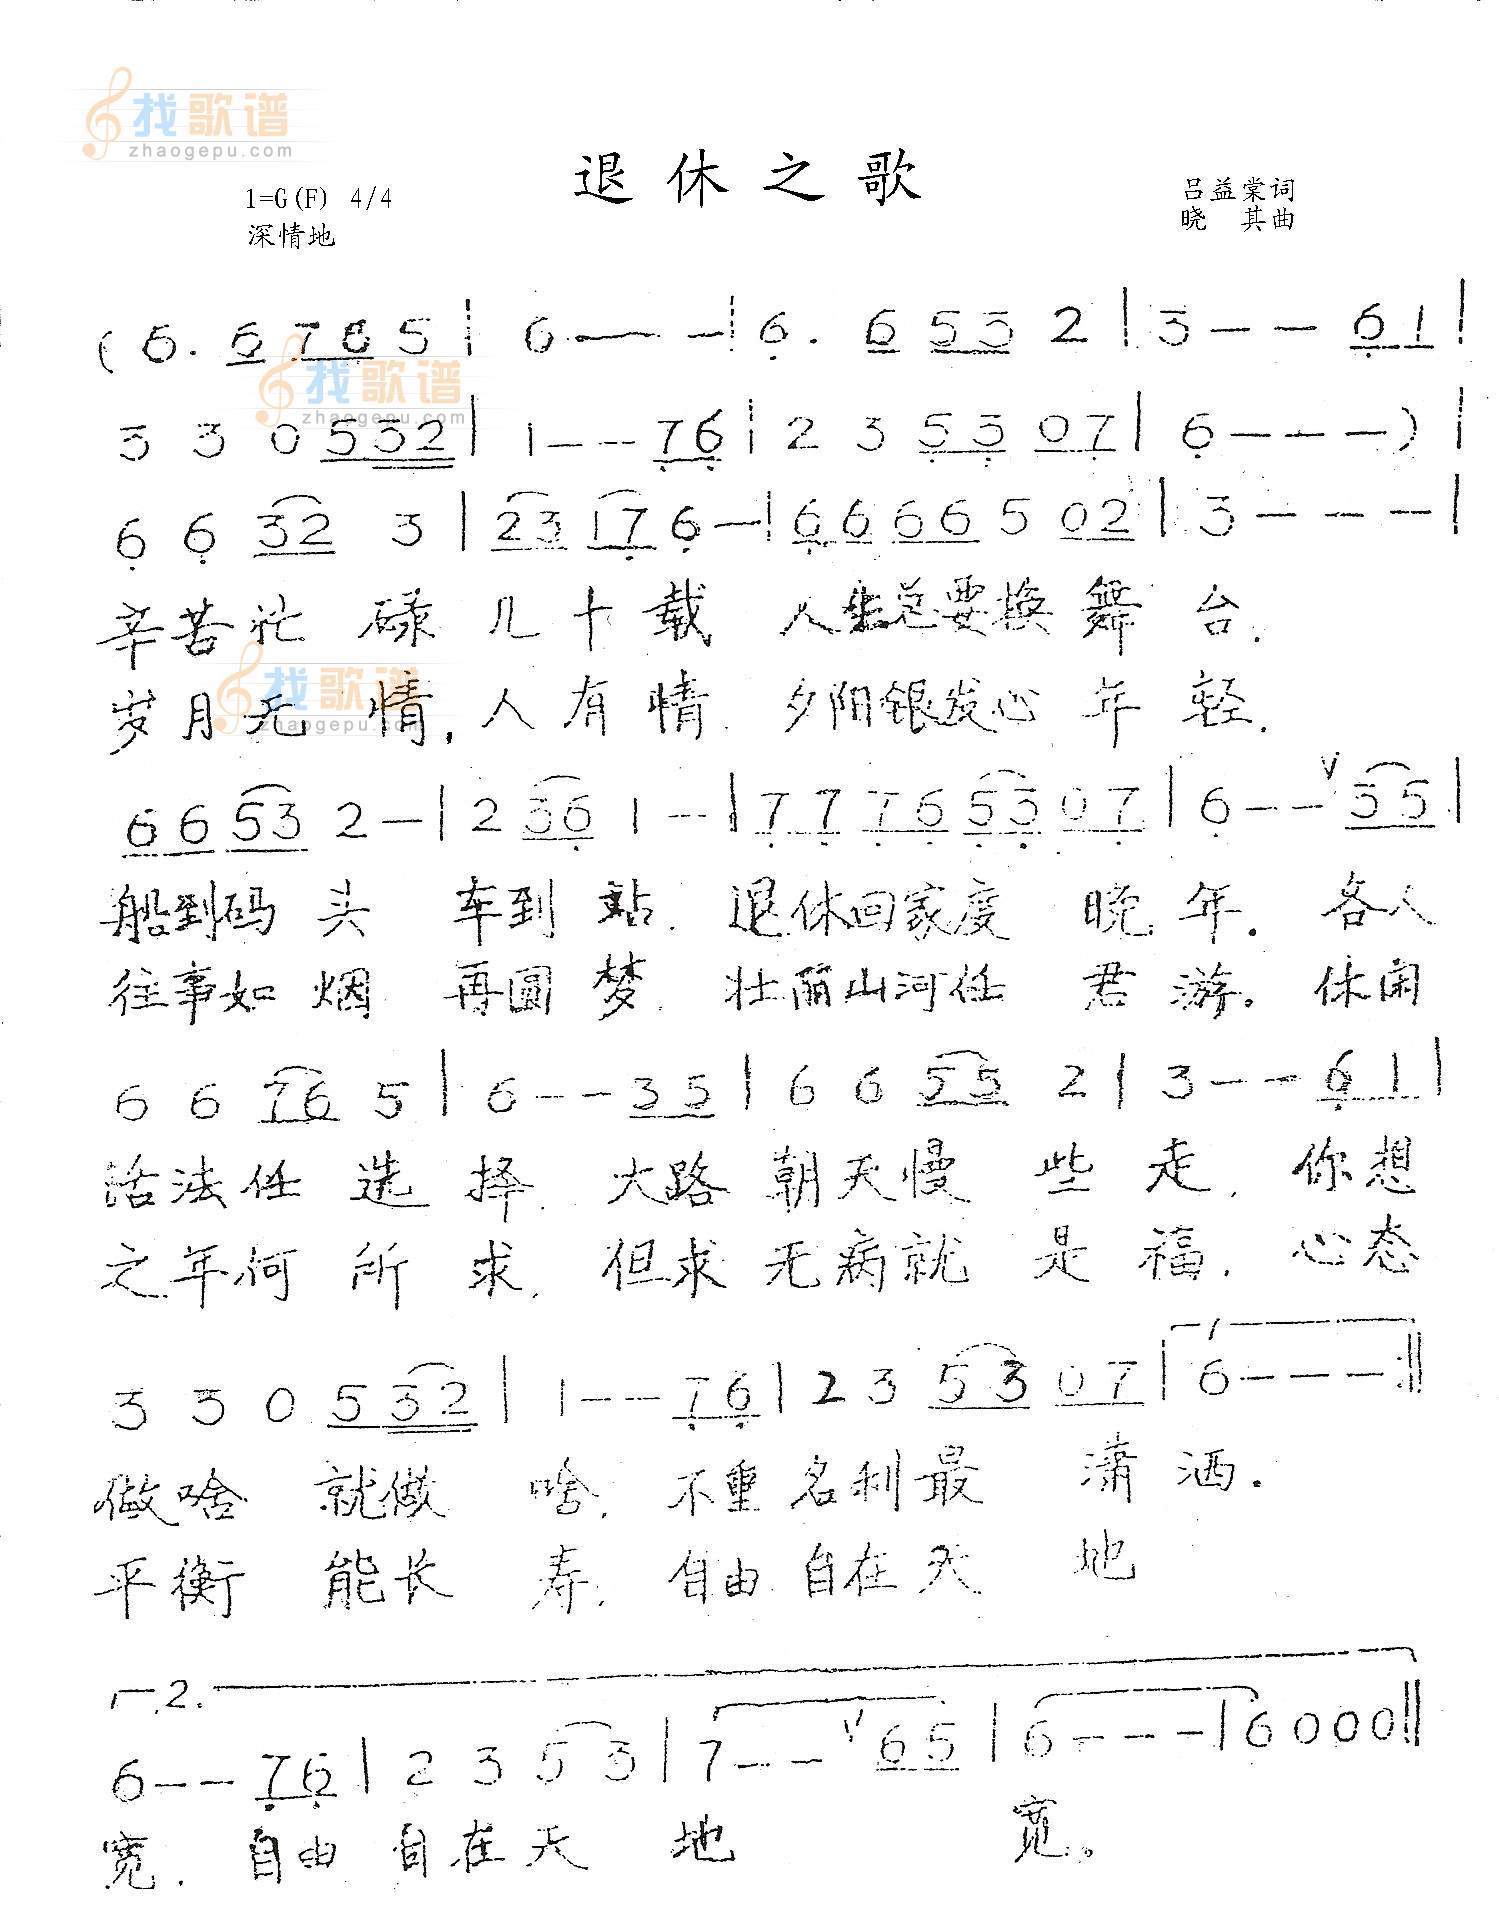 找歌谱
zhaogepu.com
退休之歌
1=G(F) 4/4
吕益棠词
深情地
晓 其曲
(6. 6 7 6 5 | 6 — — — | 6. 6 5 3 2 | 3 — — 6 1 |
找歌谱
zhaogepu.com
3 3 0 5 3 2 | 1 — — 7 6 | 2 3 5 3 0 7 | 6 — — — ) |
6 6 3 2 3 | 2 3 1 7 6 — | 6 6 6 6 5 0 2 | 3 — — — |
辛苦忙 碌 几十载 人生总要换 舞 台.
找歌谱
zhaogepu.com
岁月无 情, 人有情. 夕阳银发心 年 轻.
6 6 5 3 2 — | 2 3 6 1 — | 7 7 7 6 5 3 0 7 | 6 — — V 3 5 |
船到码 头 车到 站. 退休回家度 晚 年. 各人
往事如 烟 再圆 梦. 壮丽山河任 君 游. 休闲
6 6 7 6 5 | 6 — — 3 5 | 6 6 5 5 2 | 3 — — 6 1 |
活法任 选 择. 大路 朝天慢 些 走. 你想
之年何 所 求. 但求 无病就 是 福. 心态
1
3 3 0 5 3 2 | 1 — — 7 6 | 2 3 5 3 0 7 | 6 — — — :||
做啥 就做 啥. 不重 名利最 潇 洒.
平衡 能长 寿. 自由 自在天 地
2.
6 — — 7 6 | 2 3 5 3 | 7 — — V 6 5 | 6 — — — | 6 0 0 0 ||
宽. 自由 自在天 地 宽。